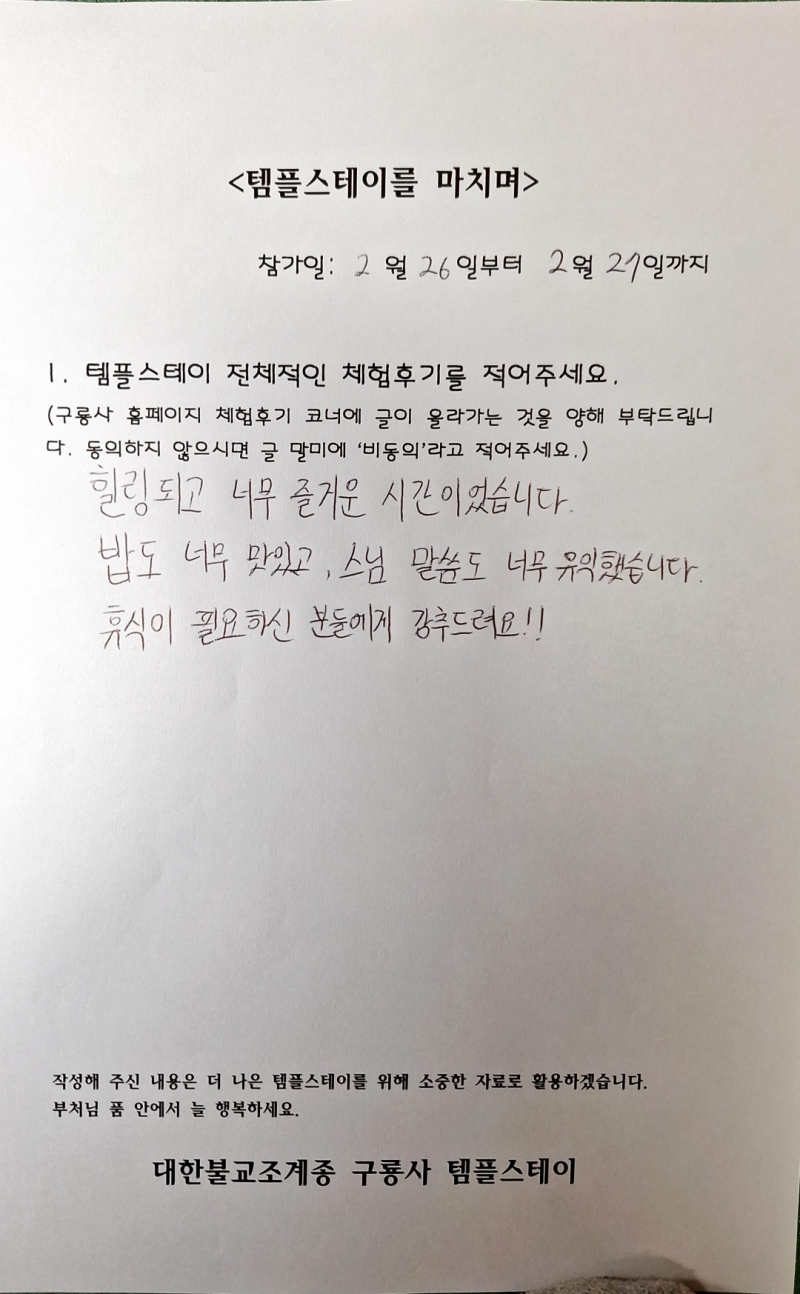 <템플스테이를 마치며>
참가일: 2 월 26일부터 2월 27일까지
1. 템플스테이 전체적인 체험후기를 적어주세요.
(구룡사 홈페이지 체험후기 코너에 글이 올라가는 것을 양해 부탁드립니
다. 동의하지 않으시면 글 말미에 '비동의'라고 적어주세요.)
힐링되고 너무 즐거운 시간이었습니다.
밥도 너무 맛있고, 스님 말씀도 너무 유익했습니다.
휴식이 필요하신 분들에게 강추드려요!!
작성해 주신 내용은 더 나은 템플스테이를 위해 소중한 자료로 활용하겠습니다.
부처님 품 안에서 늘 행복하세요.
대한불교조계종 구룡사 템플스테이